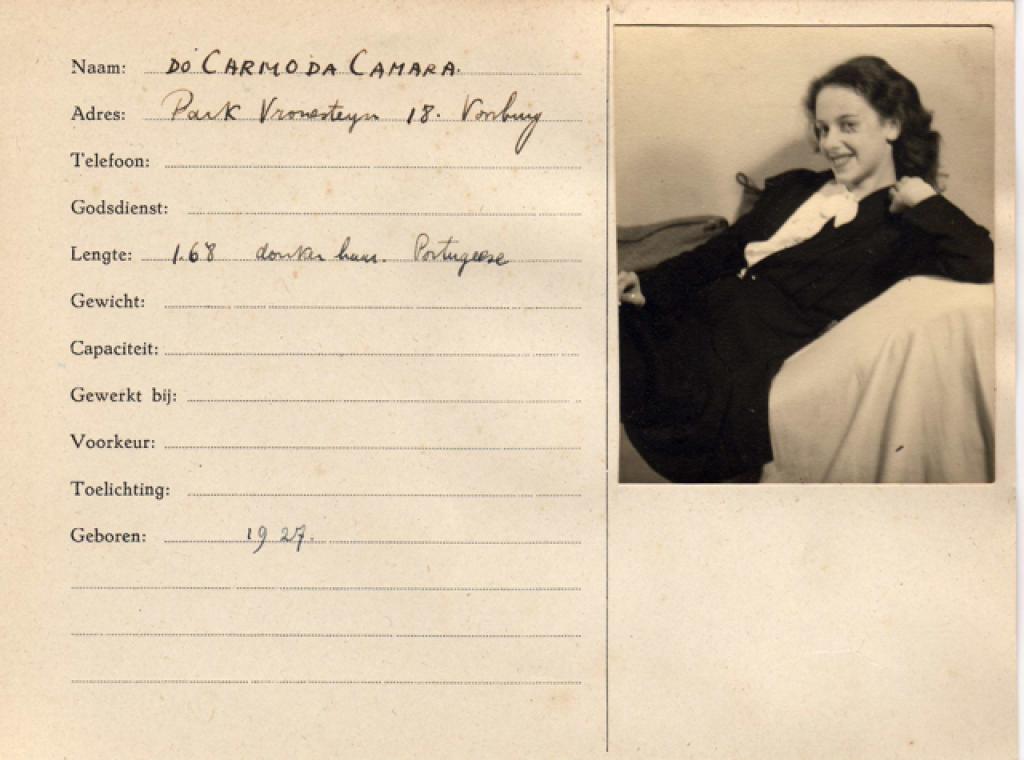 Naam: DO CARMO DA CAMARA.
Adres: Park Vronesteyn 18. Voorburg
Telefoon:
Godsdienst:
Lengte: 1.68 donker haar. Portugeese
Gewicht:
Capaciteit:
Gewerkt bij:
Voorkeur:
Toelichting:
Geboren: 1927.